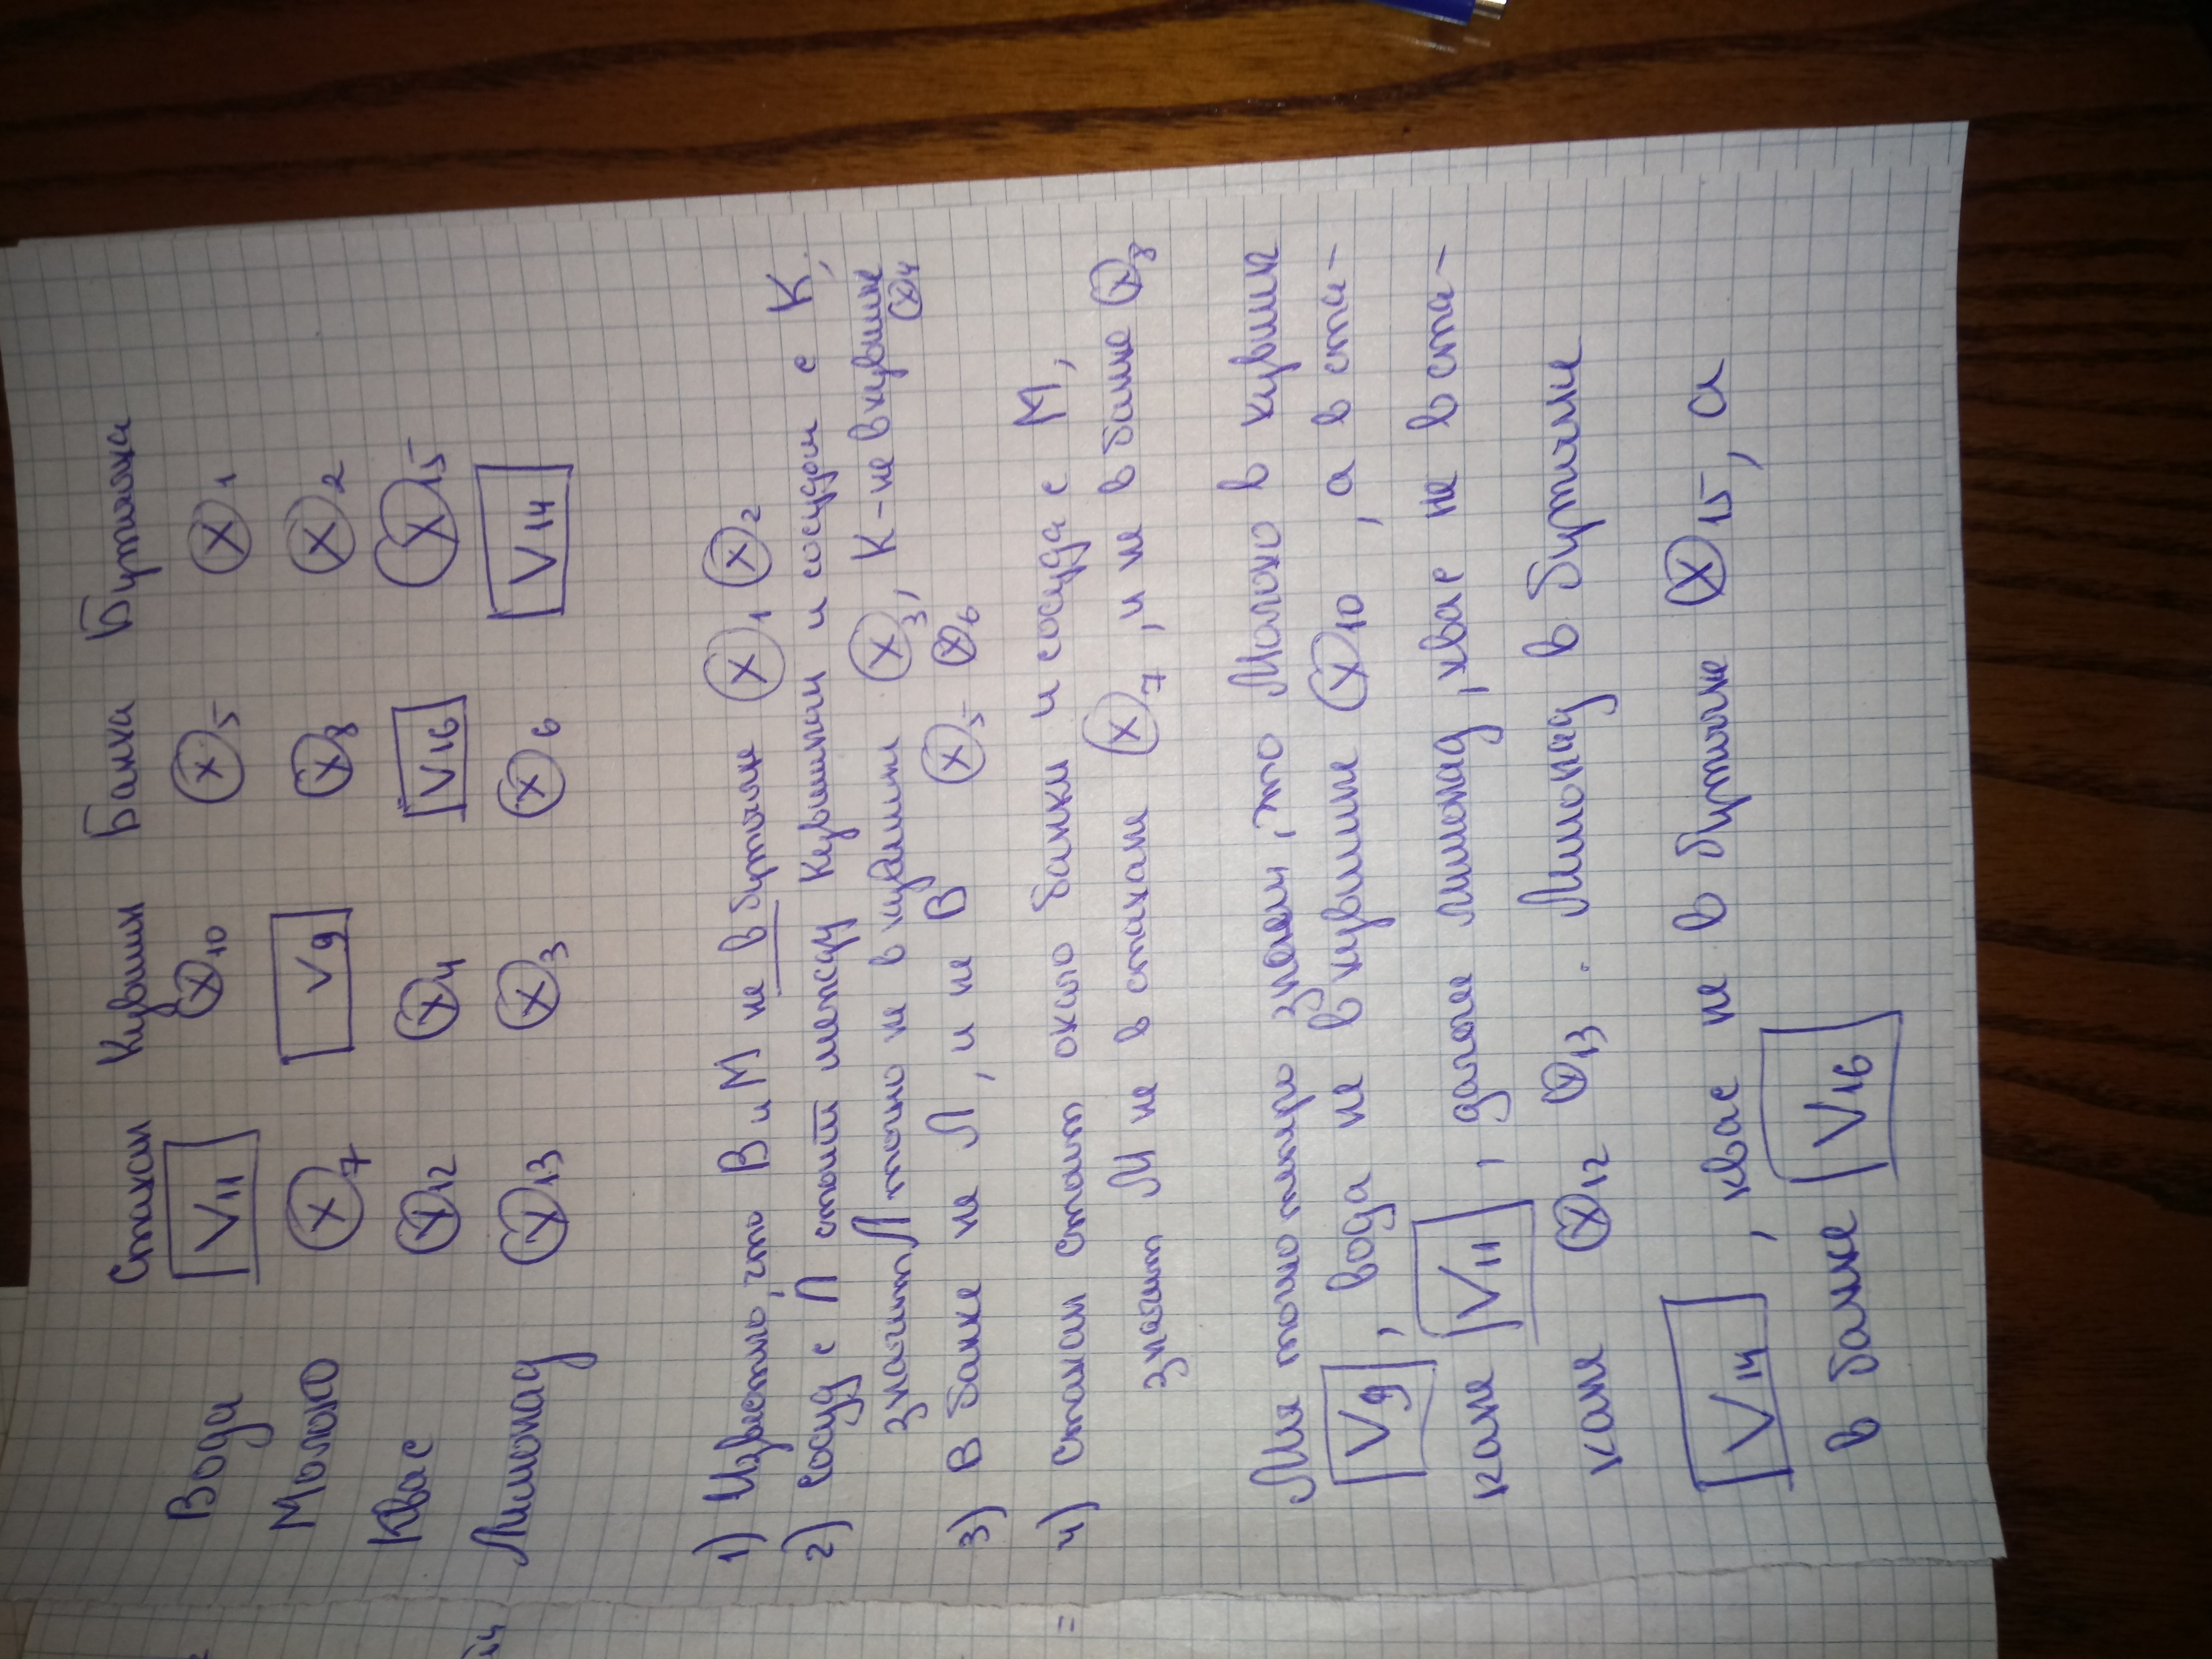 Стакан Кувшин Банка Бутылка
Вода V11 X10 X5 X1
Молоко X7 V9 X8 X2
Квас X12 X4 V16 X15
Лимонад X13 X3 X6 V14
1) Известно, что В и М не в бутылке X1 X2
2) сосуд с Л стоит между Кувшином и сосудом с К,
значит Л точно не в кувшине X3, К-не в кувшине X4
3) В банке не Л, и не В X5 X6
4) стакан стоит около банки и сосуда с М,
значит М не в стакане X7, и не в банке X8
Мы точно теперь знаем, что Молоко в кувшине
V9, вода не в кувшине X10, а в ста-
кане V11, далее лимонад, квас не в ста-
кане X12 X13. Лимонад в бутылке
V14, квас не в бутылке X15, а
в банке V16
=